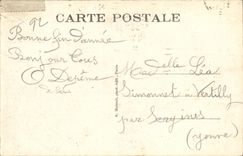 92
CARTE POSTALE
Bonne fin d'année
Bonjour Tous
Madelle Léa
Simonnet à Vertilly
par Sergines
(Yonne)